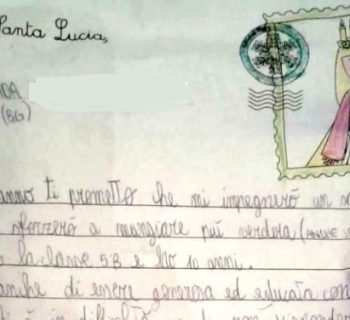 Santa Lucia,
DA
(BG)
anno ti prometto che mi impegnerò un
sforzerò a mangiare più verdura (ANCHE
la classe 5B e ho 10 anni.
anche di essere generosa ed educata con
in difficoltà